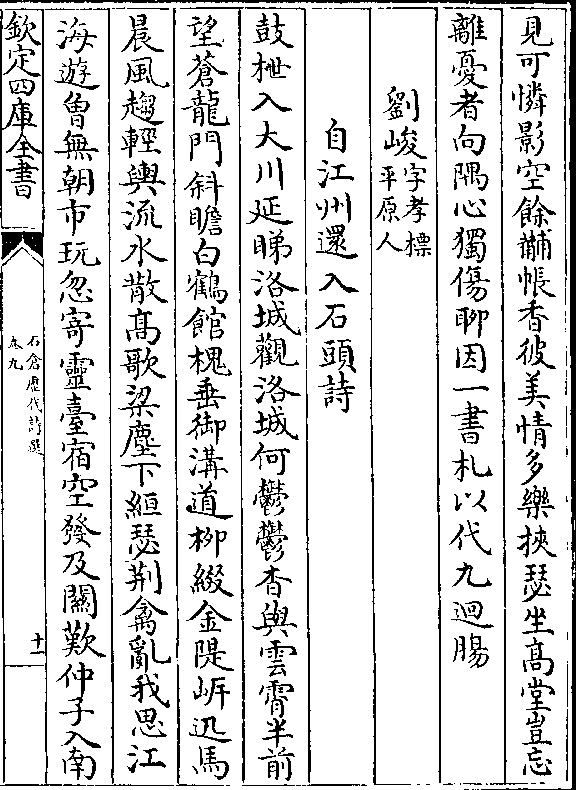 見可憐影空餘黼帳香彼美情多樂挾瑟坐髙堂豈忘
離憂者向隅心獨傷聊因一書札以代九迴腸
劉峻字孝標平原人
自江州還入石頭詩
鼓枻入大川延睇洛城觀洛城何鬱鬱杳與雲霄半前
望蒼龍門斜瞻白鶴館槐垂御溝道栁綴金隄㟁迅馬
晨風趨輕輿流水散髙歌梁塵下絙瑟荆禽亂我思江
海遊曾無朝市玩忽寄靈臺宿空發及關歎仲子入南
欽定四庫全書
石倉歷代詩選
卷九
十